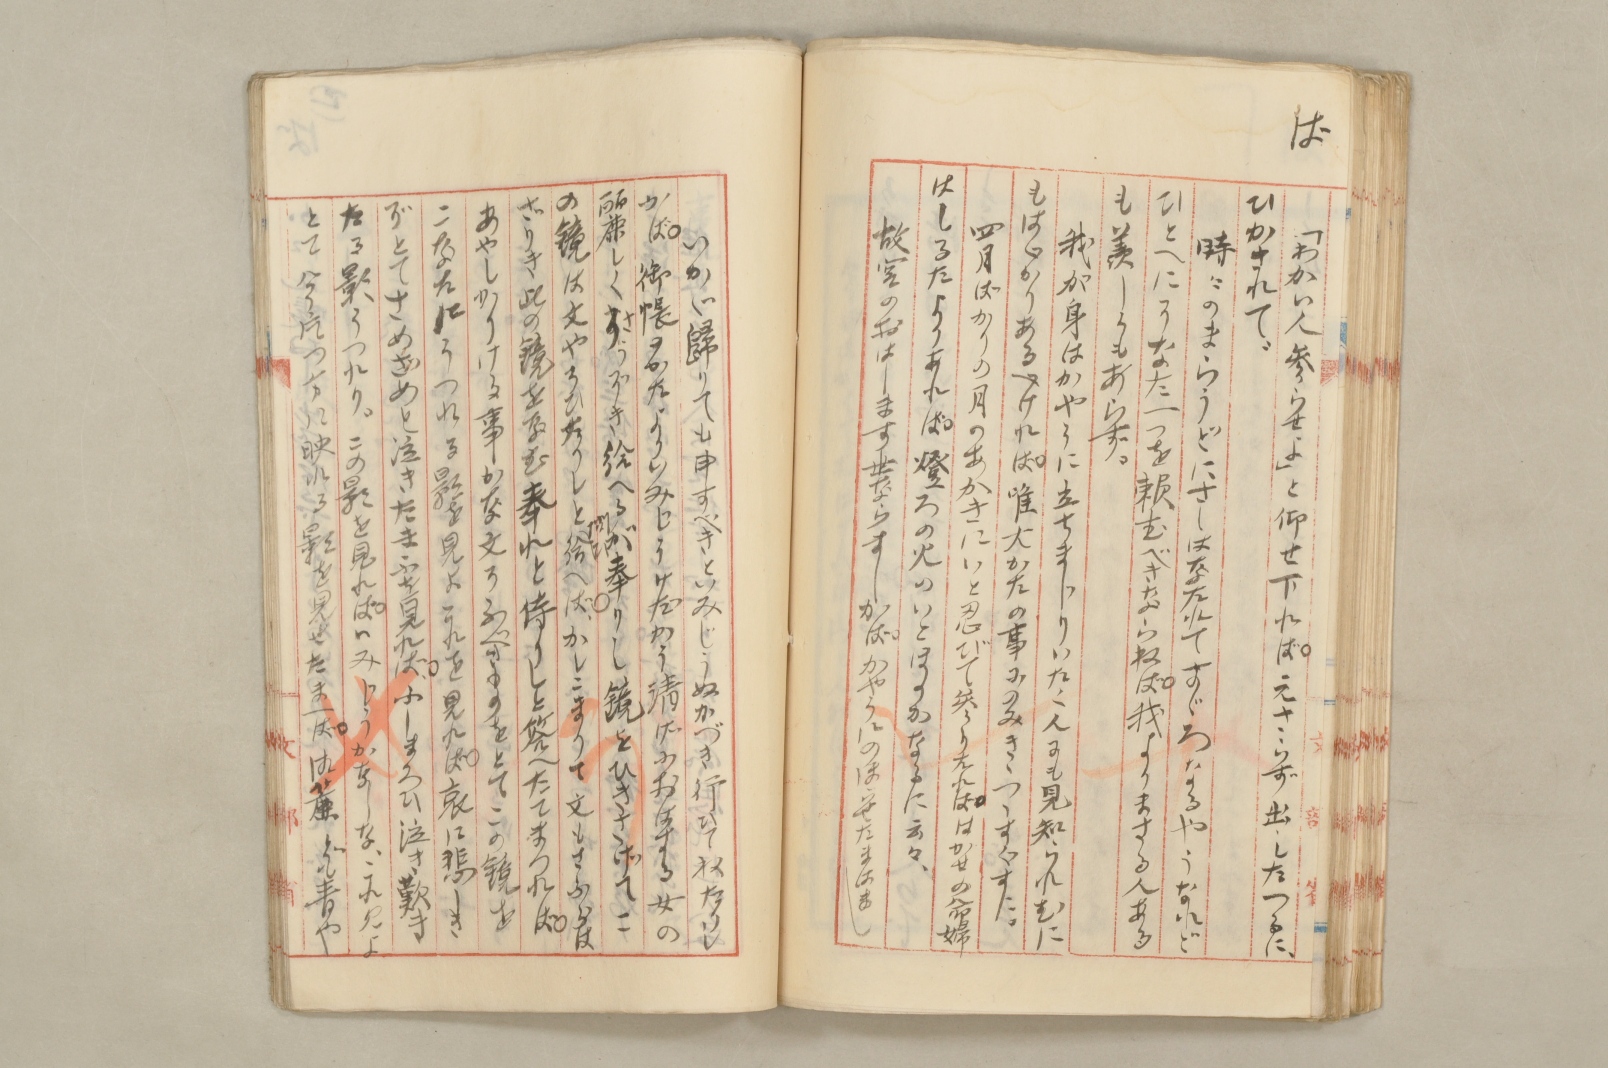 ば
「わかい人參らせよ」と仰せ下れば元さらず出したつるに、
ひかされて、
時〻のまらうどにさしはなたれてすゞろなるやうなれど
ひとへにうなた一つを頼むべきならねば我よりまさる人ある
も羨しうもあらず。
我が身はかやうに立ちまじりいたく人にも見知られむに
もはゞかりあるべければ唯大かたの事にのみきゝつゝすぐすに。
四月ばかりの月のあかきにいと忍びて參りたればはかせの命婦
はしるたよりあれば燈ろの火のいとほのかなるに云々、
故宮のおはします世ならましかばかやうにのぼせたまはまし
いかゞ歸りても申すべきといみじうぬかづき行ひて寐たりし
かば御帳のかたよりいみじうけだかう清げにおはする女の
麗しくさうぞき給へるが奉りし鏡をひきさげてこ
の鏡は文やそひたりしと給へばかしこまりて文もさふらは
ざりき此の鏡をなむ奉れと侍りしと答へたてまつれば
あやしかりける事かな文そふべきものをとてこの鏡を
こなたにうつれる影を見よこれを見れば哀に悲しき
ぞとてさめざめと泣きたまふを見ればふしまろび泣き歎き
たる影うつれり。この影を見ればいみじうかなしな、これ見よ
とて今片つ方に映れる影を見せたまへば御簾ども青や